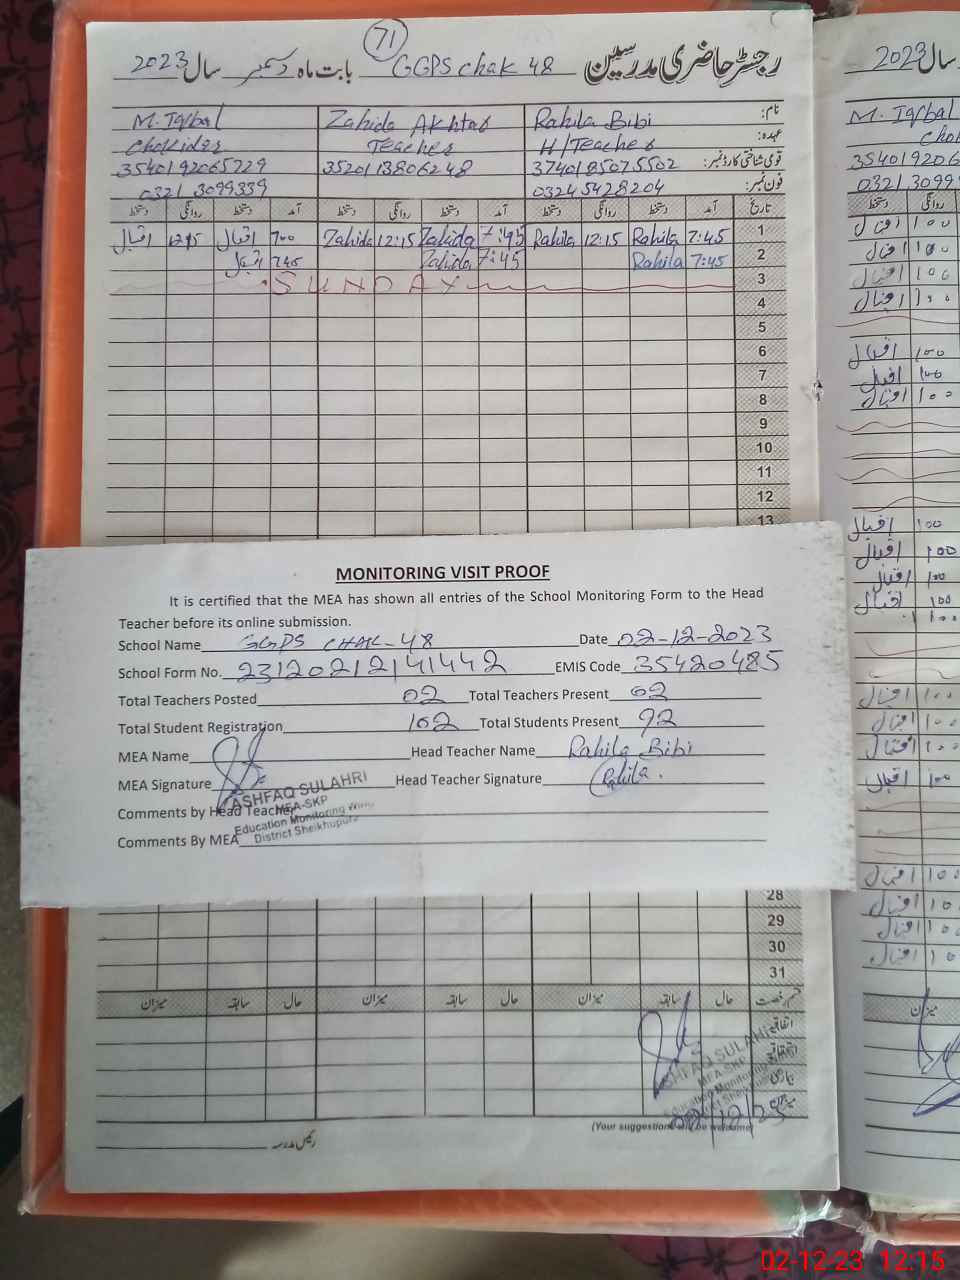 71
رجسٹر حاضری مدرسین GGPS chak 48 بابت ماہ دسمبر سال 2023
نام: Rahila Bibi Zahida Akhtar M. Iqbal
عہدہ: H/Teacher Teacher Chokider
قومی شناختی کارڈ نمبر: 3740185075502 3520113806248 3540192065729
فون نمبر: 03245428204 0321 3099339
تاریخ آمد دستخط روانگی دستخط آمد دستخط روانگی دستخط آمد دستخط روانگی دستخط
1 7:45 Rahila 12:15 Rahila 7:45 Zahida 12:15 Zahida 700 اقبال 1215 اقبال
2 7:45 Rahila 7:45 Zahida 745 اقبال
3 SUNDAY
4
5
6
7
8
9
10
11
12
13
MONITORING VISIT PROOF
It is certified that the MEA has shown all entries of the School Monitoring Form to the Head
Teacher before its online submission.
School Name GGPS CHAK-48 Date 02-12-2023
School Form No. 23120212141442 EMIS Code 35420485
Total Teachers Posted 02 Total Teachers Present 02
Total Student Registration 102 Total Students Present 92
MEA Name Head Teacher Name Rahila Bibi
MEA Signature Head Teacher Signature Rahila.
Comments by Head Teacher
Comments By MEA
ASHFAQ SULAHRI
MEA-SKP
Education Monitoring Wing
District Sheikhupura
28
29
30
31
قسم رخصت حال سابقہ میزان حال سابقہ میزان حال سابقہ میزان
اتفاقیہ
میزان
ASHFAQ SULAHRI
MEA-SKP
Education Monitoring Wing
District Sheikhupura
02/12/23
(Your suggestions will be welcome)
رئیس مدرسہ
سال 2023
M. Iqbal
Chok
354019206
0321 3099
روانگی دستخط
100 اقبال
100 اقبال
100 اقبال
100 اقبال
100 اقبال
100 اقبال
100 اقبال
100 اقبال
100 اقبال
100 اقبال
100 اقبال
100
100 اقبال
100 اقبال
100 اقبال
100 اقبال
100 اقبال
100 اقبال
100 اقبال
100 اقبال
میزان
02-12-23 12:15